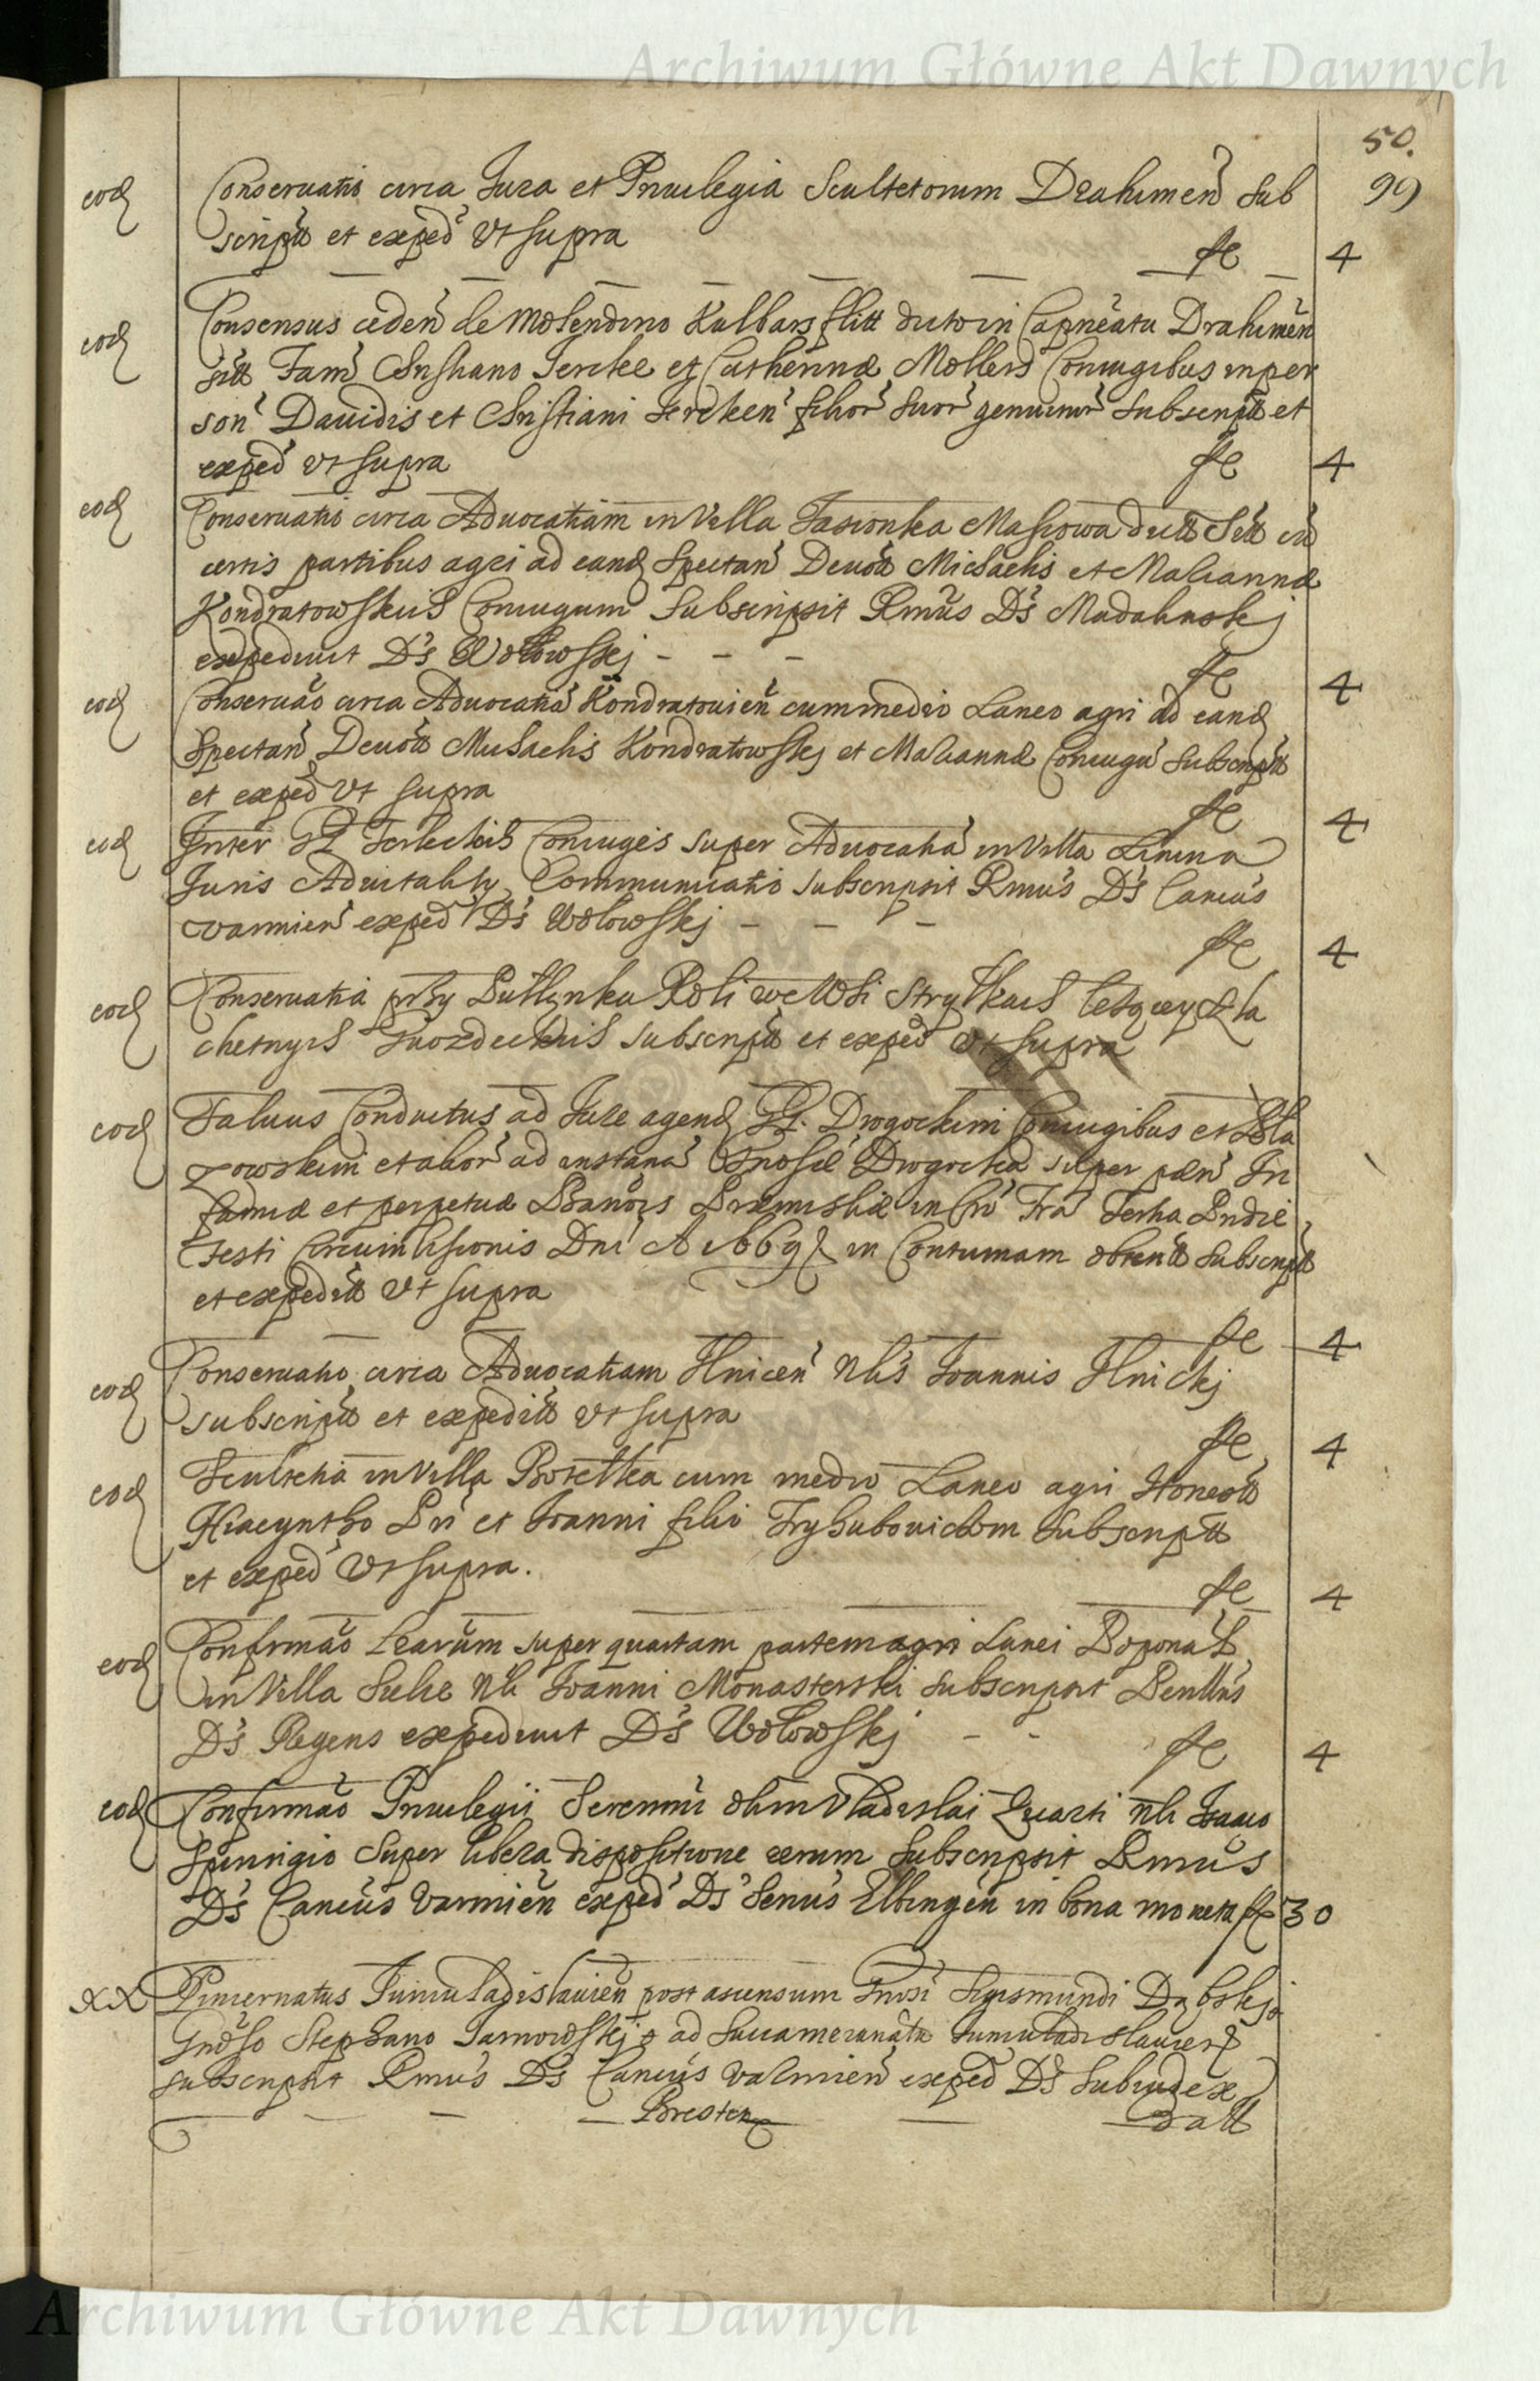 Archiwum Główne Akt Dawnych
50.
99
eod Conseruatio circa Jura et Priuilegia Scultetorum Drahimen Sub
script et exped Vt supra fl 4
eod Consensus ceden de Molendino Kalbars flitt dicto in Capneatu Drahimen
sitt Fam Christiano Jercke et Catherinae Mollers Coniugibus in per
son Dauidis et Christiani Jercken filior suor genuinor subscript et
exped vt supra fl 4
eod Conseruatio circa Aduocatiam in Villa Jasionka Masiowa dict Sitt cu
certis partibus agri ad eand Spectan Deuot Michaelis et Mariannae
Kondratowskich Coniugum Subscripsit Rmus Ds Madalinskj
expediuit Ds Wołowskj - - - fl 4
eod Conseruao circa Aduocatia Kondratouien cum medio Laneo agri ad eand
Spectan Deuot Michaelis Kondratowskj et Mariannae Coniugu Subscript
et exped Vt supra fl 4
eod Inter Terleckich Coniuges super Aduocatia in Villa Linina
Juris Aduitality Communicatio subscripsit Rmus Ds Cancius
varmien exped Ds Wołowskj - - - fl 4
eod Conseruatia przy Roli we Wsi Stryłkach leżącey Szla
chetnych Gwozdeckich subscript et exped Vt supra
eod Saluus Conductus ad Jure agend Drogockim Coniugibus et
zowskim et alior ad instan Gnosae Drogocka super paen In
famiae et perpetuae Bannois Praemisliae in Fra Tertia Pridie
Festi Circumcisionis Dni A 1669 in Contumam obtent subscript
et expedit Vt supra fl 4
eod Conseruatio circa Aduocatiam Ilnicen Nlis Joannis Ilnickj
subscript et expedit Vt supra fl 4
eod Scultetia in Villa cum medio Laneo agri Honeott
Hiacyntho Pri et Joanni filio Tryhubouickom Subscriptt
et exped Vt supra. fl 4
eod Confirmao Lrarum super quartam partem agri Lanei
in Villa Suche Nli Joanni Monasterski subscripsit Perillris
Ds Regens expediuit Ds Wołowskj - - fl 4
eod Confirmao Priuilegij Serenmi olim Vladislai Quarti nli Isaaco
Spiringio super libera dispositione rerum subscripsit Rmus
Ds Cancius Varmien exped Ds Senus Elbingen in bona moneta fl 30
XX Pincernatus Juniuladislauien post ascensum Gnosi Sigismundi Dąbskj
Gnoso Stephano Jarnowskj ad Succameranatu Juniuladislauien
subscripsit Rmus Ds Cancius varmien exped Ds Subiudex
Bresten datt
Archiwum Główne Akt Dawnych